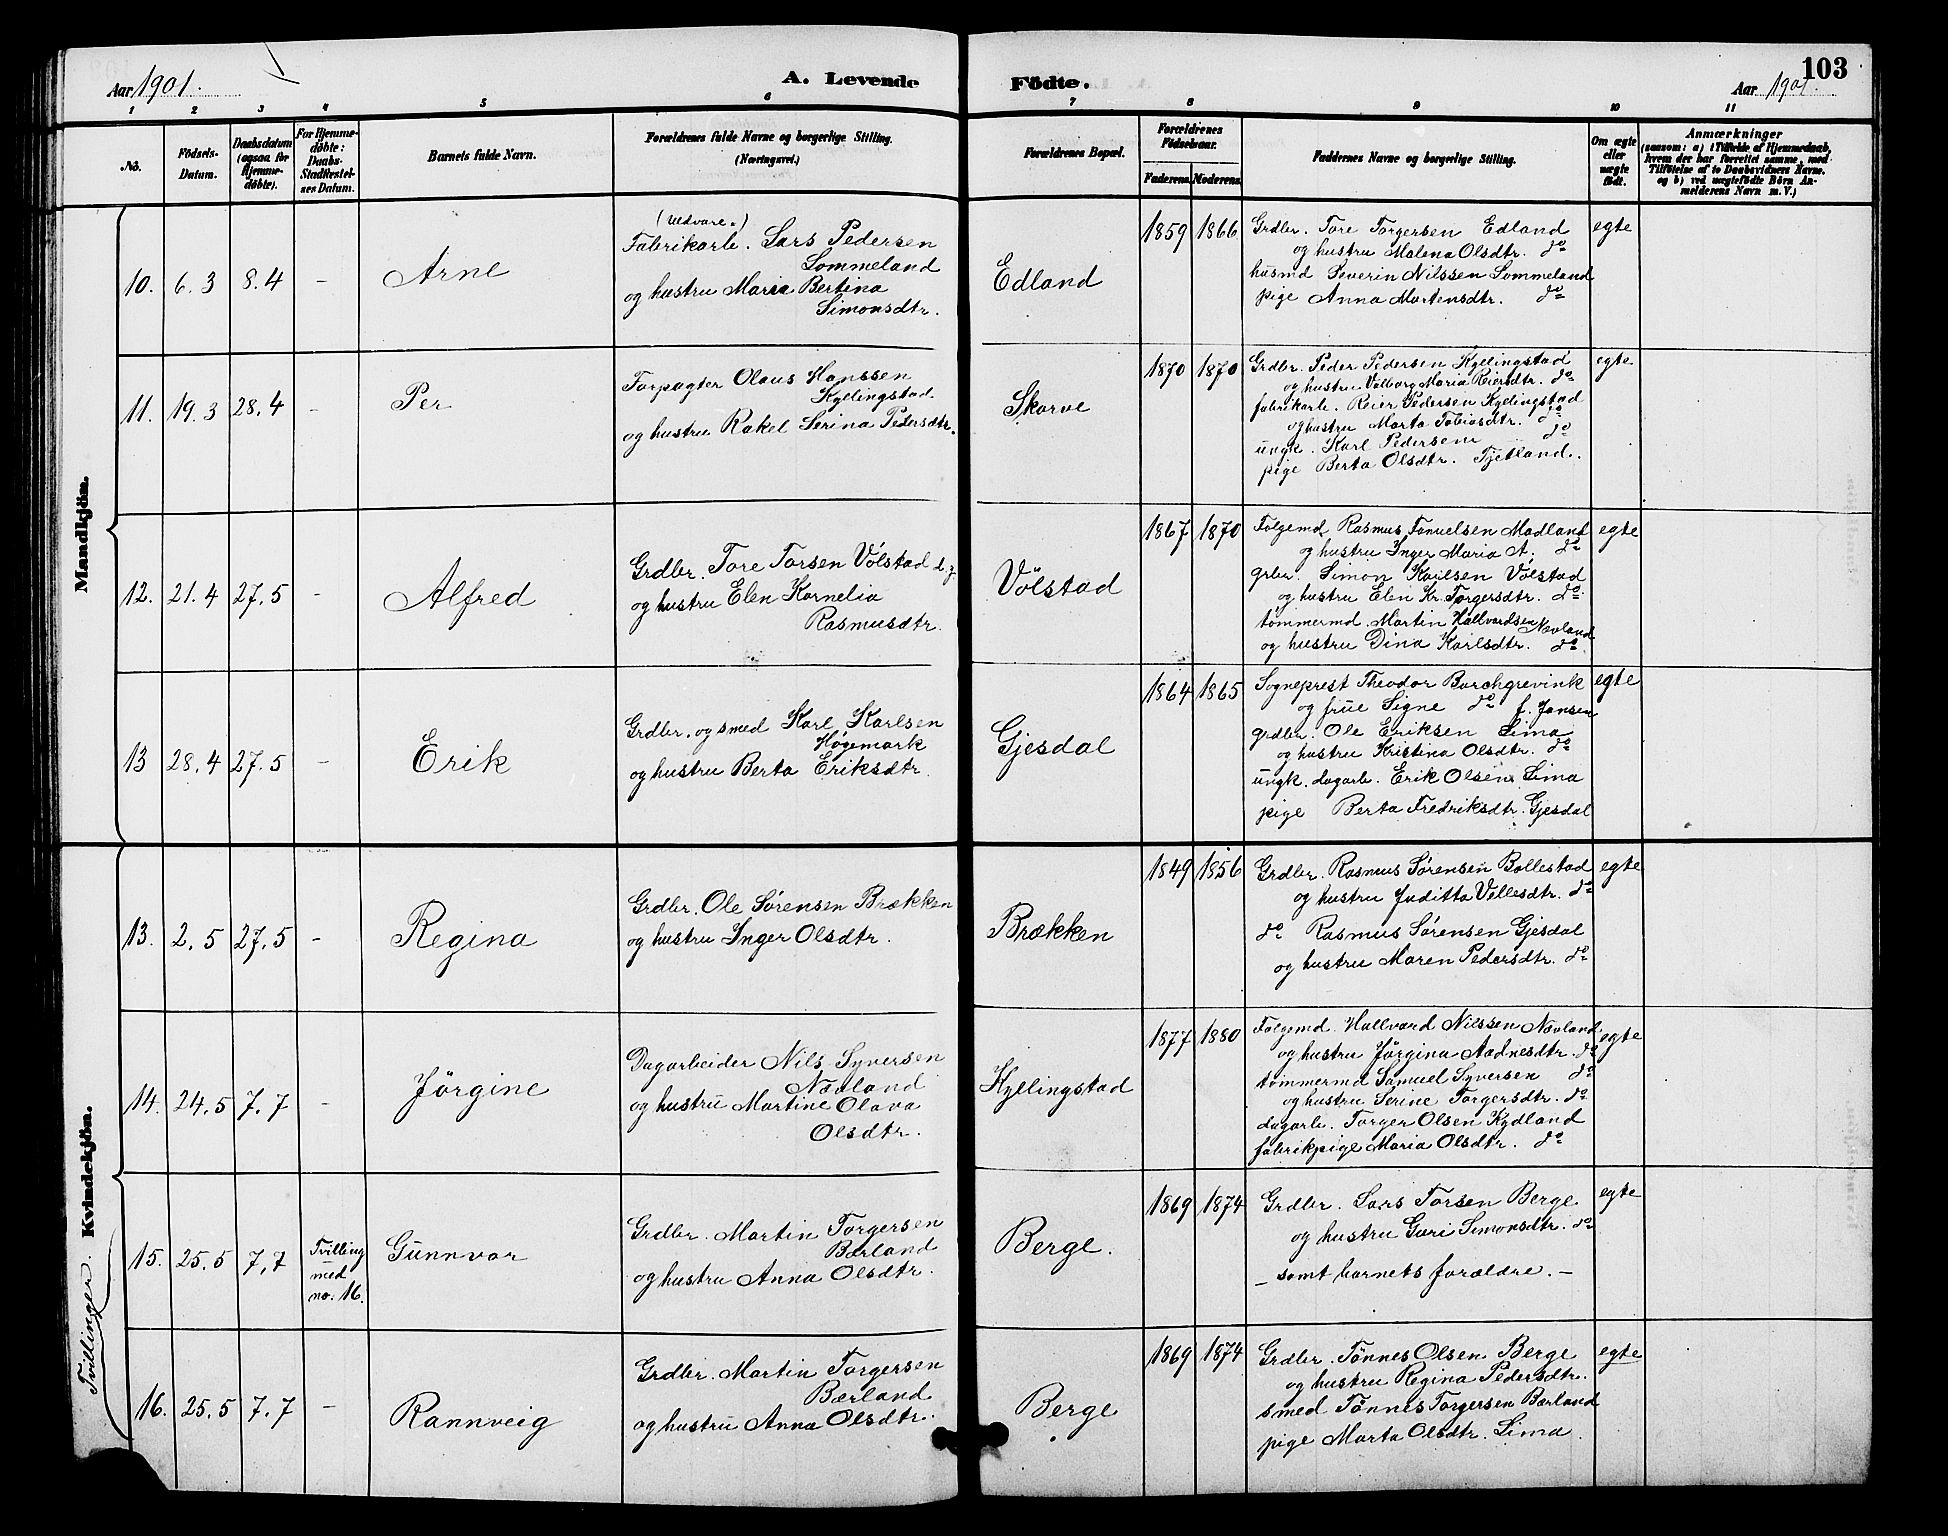 103
Aar 1901.
A. Levende
Födte.
Aar 1901.
1 2 3 4 5 6 7 8 9 10 11
No.
Födsels-Datum.
Daabsdatum (ogsaa for Hjemme-döbte).
For Hjemme-döbte: Daabs-Stadfestel-ses Datum.
Barnets fulde Navn.
Forældrenes fulde Navne og borgerlige Stilling.
(Næringsvei.)
Forældrenes Bopæl.
Forældrenes Födselsaar.
Faderens. Moderens.
Faddernes Navne og borgerlige Stilling.
Om ægte eller uægte födt.
Anmærkninger
(saasom: a) i Tilfælde af Hjemmedaab,
hvem der har forrettet samme, med
Tilföielse af to Daabsvidners Navne.
og b) ved uægtefödte Börn An-
melderens Navn m. V.)
Mandkjön.
10. 6.3 8.4 – Arne
(uldvare.)
Fabrikarb. Lars Pedersen
Sommeland
og hustru Maria Bertina
Simonsdtr.
Edland
1859 1866
Grdbr. Tore Torgersen Edland
og hustru Malena Olsdtr. do
husmd Severin Nilssen Sommeland
pige Anna Martensdtr. do
egte
11. 19.3 28.4 – Per
Forpagter Olaus Hanssen
Kyllingstad.
og hustru Rakel Serina Pedersdtr.
Skarve
1870 1870
Grdbr. Peder Pedersen Kyllingstad
og hustru Valborg Maria Reiersdtr. do
fabrikarb. Reier Pedersen Kyllingstad
og hustru Marta Tobiasdtr. do
ungk. Karl Pedersen do
pige Berta Olsdtr. Tjetland.
egte
12. 21.4 27.5 – Alfred
Grdbr. Tore Torsen Völstad d.y.
og hustru Elen Kornelia
Rasmusdtr.
Völstad
1867 1870
Følgemd Rasmus Tønnelsen Madland
og hustru Inger Maria A. do
grbr. Simon Karlsen Völstad
og hustru Elen Kr. Torgersdtr. do
tømmermd. Martin Hallvardsen Næsland
og hustru Dina Karlsdtr. do
egte
13 28.4 27.5 – Erik
Grdbr. og smed Karl Karlsen
Høgemark
og hustru Berta Eriksdtr.
Gjesdal
1864 1865
Sogneprest Theodor Borchgrevink
og frue Signe do f. Jansen
grdbr. Ole Eriksen Lima
og hustru Kristina Olsdtr. do
ungk. dagarb. Erik Olsen Lima
pige Berta Fredriksdtr. Gjesdal
egte
Kvindekjön.
13. 2.5 27.5 – Regina
Grdbr. Ole Sørensen Brækken
og hustru Inger Olsdtr.
Brækken
1849 1856
Grdbr. Rasmus Sørensen Bollestad
og hustru Juditta Villesdtr. do
do Rasmus Sørensen Gjesdal
og hustru Maren Pedersdtr. do
egte
14. 24.5 7.7 – Jörgine
Dagarbeider Nils Syversen
Næsland
og hustru Martine Olava
Olsdtr.
Kyllingstad
1877 1880
Følgemd. Hallvard Nilssen Næsland
og hustru Jörgina Aadnesdtr. do
tømmermd Samuel Syversen do
og hustru Serine Torgersdtr. do
dagarb. Torger Olsen Kydland
fabrikpige Maria Olsdtr. do
egte
Tvillinger
15. 25.5 7.7 Tvilling med no. 16. Gunnvor
Grdbr. Martin Torgersen
Bærland
og hustru Anna Olsdtr.
Berge.
1869 1874
Grdbr. Lars Torsen Berge
og hustru Guri Simonsdtr. do
– samt barnets forældre. –
egte
16. 25.5 7.7 – Rannveig
Grdbr. Martin Torgersen
Bærland
og hustru Anna Olsdtr.
Berge
1869 1874
Grdbr. Tönnes Olsen Berge
og hustru Regina Pedersdtr.
smed Tönnes Torgersen Bærland
pige Marta Olsdtr. Lima.
egte